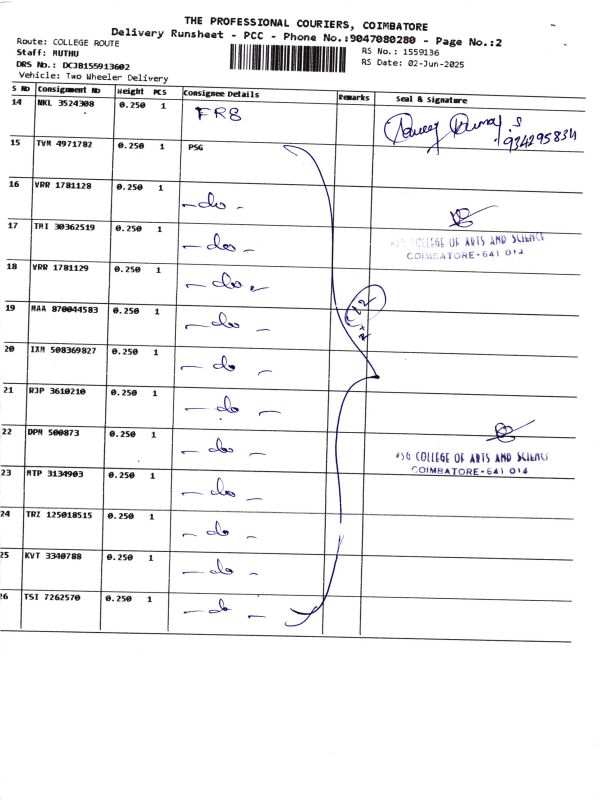 THE PROFESSIONAL COURIERS, COIMBATORE
Delivery Runsheet - PCC - Phone No.:9047080280 - Page No.:2
Route: COLLEGE ROUTE
RS No. : 1559136
Staff: MUTHU
RS Date: 02-Jun-2025
DRS No.: DCJB155913602
Vehicle: Two Wheeler Delivery
S No Consignment No Weight PCS Consignee Details Remarks Seal & Signature
14 NKL 3524308 0.250 1 FR8
9342958311
15 TVM 4971782 0.250 1 PSG
16 VRR 1781128 0.250 1 - do -
17 TMI 30362519 0.250 1 - do -
PSG COLLEGE OF ARTS AND SCIENCE
COIMBATORE-641 014
18 VRR 1781129 0.250 1 - do -
19 MAA 870044583 0.250 1 - do -
20 IXM 508369827 0.250 1 - do -
21 RJP 3610210 0.250 1 - do -
22 DPM 500873 0.250 1 - do -
PSG COLLEGE OF ARTS AND SCIENCE
COIMBATORE-641 014
23 MTP 3134903 0.250 1 - do -
24 TRZ 125018515 0.250 1 - do -
25 KVT 3340788 0.250 1 - do -
26 TSI 7262570 0.250 1 - do -